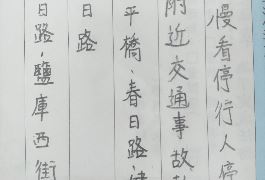 慢看停行人停
附近交通事故
平橋、春日路、
日路
日路，鹽庫西街